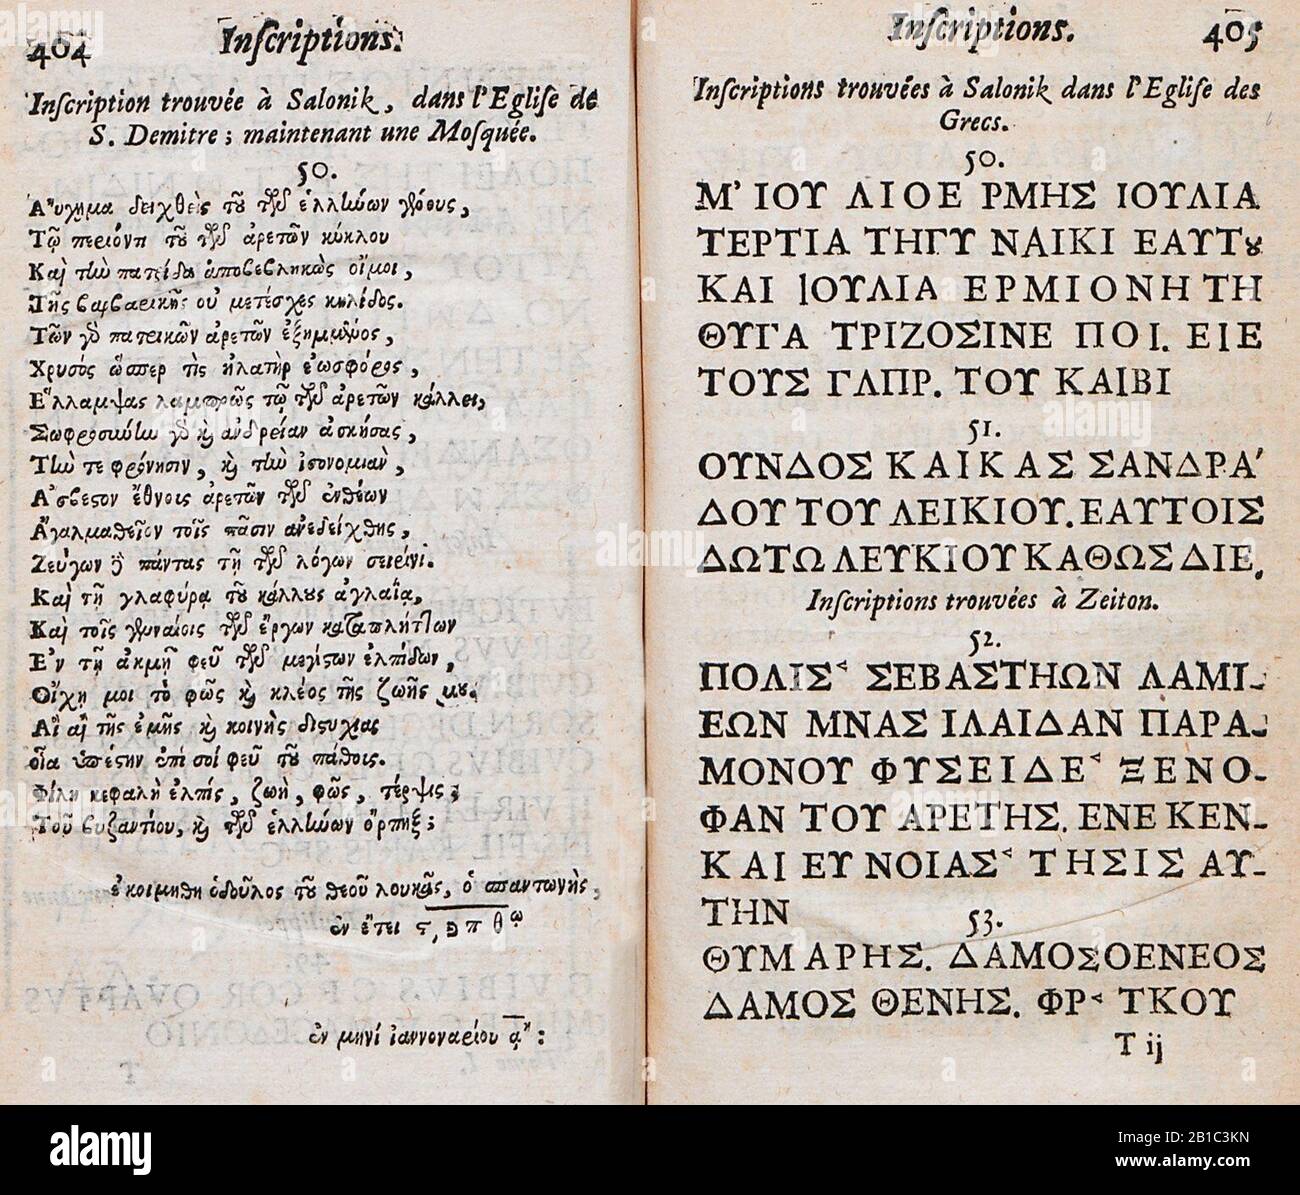 404 Inſcriptions.
Inſcription trouvée à Salonik, dans l'Egliſe de
S. Demitre ; maintenant une Moſquée.
50.
Αὔχημα δειχθεὶς τοῦ τῶν ἑλλήνων γένους,
Τῷ περιόντι τοῦ τῶν ἀρετῶν κύκλου
Καὶ τὴν πατρίδα ἀποβεβληκὼς οἴμοι,
Τῆς βαρβαρικῆς οὐ μετέσχες κηλίδος.
Τῶν γὸ πατρικῶν ἀρετῶν ἐξημμένος,
Χρυσός ὥσπερ τὶς ἠλατὴρ ἑωσφόρος,
Ἔλλαμψας λαμπρῶς τῷ τῶν ἀρετῶν κάλλει,
Σωφροσύνην γὸ κỳ ἀνδρείαν ἀσκήσας,
Τήν τε φρόνησιν, κỳ τὴν ἰσονομιὰν,
Ἄσβεστον ἔθνοις ἀρετῶν τῶν ἐνθέων
Ἀγαλμαθεῖον τοῖς πᾶσιν ἀνεδείχθης,
Ζεύγων δὲ πάντας τῇ τῶν λόγων σειρῖνι.
Καὶ τῇ γλαφύρᾳ τοῦ κάλλους ἀγλαΐᾳ,
Καὶ τοῖς γενναίοις τῶν ἔργων καταπλήττων
Ἐν τῇ ἀκμῇ φεῦ τῶν μεγίστων ἐλπίδων,
Οἴχῃ μοι τὸ φῶς κỳ κλέος τῆς ζωῆς μου.
Αἲ αἲ τῆς ἐμῆς κỳ κοινῆς δυστυχιας
οἷα ὑπέστην ἐπί σοί φεῦ τοῦ πάθοις.
Φίλη κεφαλὴ ἐλπίς, ζωὴ, φῶς, τέρψις;
Τοῦ βυζαντίου, κỳ τῶν ἑλλήνων ὄρπηξ;
ἐκοιμηθη ὁδοῦλος τοῦ θεοῦ λουκᾶς, ὁ σπαντωνής,
ἐν ἔτει ϛ, ϡ π θῳ
ἐν μηνί ἰαννοναρίου αῃ:
Inſcriptions. 405
Inſcriptions trouvées à Salonik dans l'Egliſe des
Grecs.
50.
Μ' ΙΟΥ ΛΙΟΕ ΡΜΗΣ ΙΟΥΛΙΑ
ΤΕΡΤΙΑ ΤΗΓΥ ΝΑΙΚΙ ΕΑΥΤȣ
ΚΑΙ ΙΟΥΛΙΑ ΕΡΜΙΟΝΗ ΤΗ
ΘΥΓΑ ΤΡΙΖΟΣΙΝΕ ΠΟΙ. ΕΙΕ
ΤΟΥΣ ΓΛΠΡ. ΤΟΥ ΚΑΙΒΙ
51.
ΟΥΝΔΟΣ ΚΑΙΚΑΣ ΣΑΝΔΡΑ'
ΔΟΥ ΤΟΥ ΛΕΙΚΙΟΥ. ΕΑΥΤΟΙΣ
ΔΩΤΩ ΛΕΥΚΙΟΥ ΚΑΘΩΣ ΔΙΕ.
Inſcriptions trouvées à Zeiton.
52.
ΠΟΛΙΣ< ΣΕΒΑΣΤΗΩΝ ΛΑΜΙ-
ΕΩΝ ΜΝΑΣ ΙΛΑΙΔΑΝ ΠΑΡΑ-
ΜΟΝΟΥ ΦΥΣΕΙΔΕ< ΞΕΝΟ-
ΦΑΝ ΤΟΥ ΑΡΕΤΗΣ. ΕΝΕ ΚΕΝ-
ΚΑΙ ΕΥ ΝΟΙΑΣ< ΤΗΣΙΣ ΑΥ-
ΤΗΝ
53.
ΘΥΜΑΡΗΣ. ΔΑΜΟΣΟΕΝΕΟΣ
ΔΑΜΟΣ ΘΕΝΗΣ. ΦΡ< ΤΚΟΥ
T ij
alamy
Image ID: 2B1C3KN
www.alamy.com